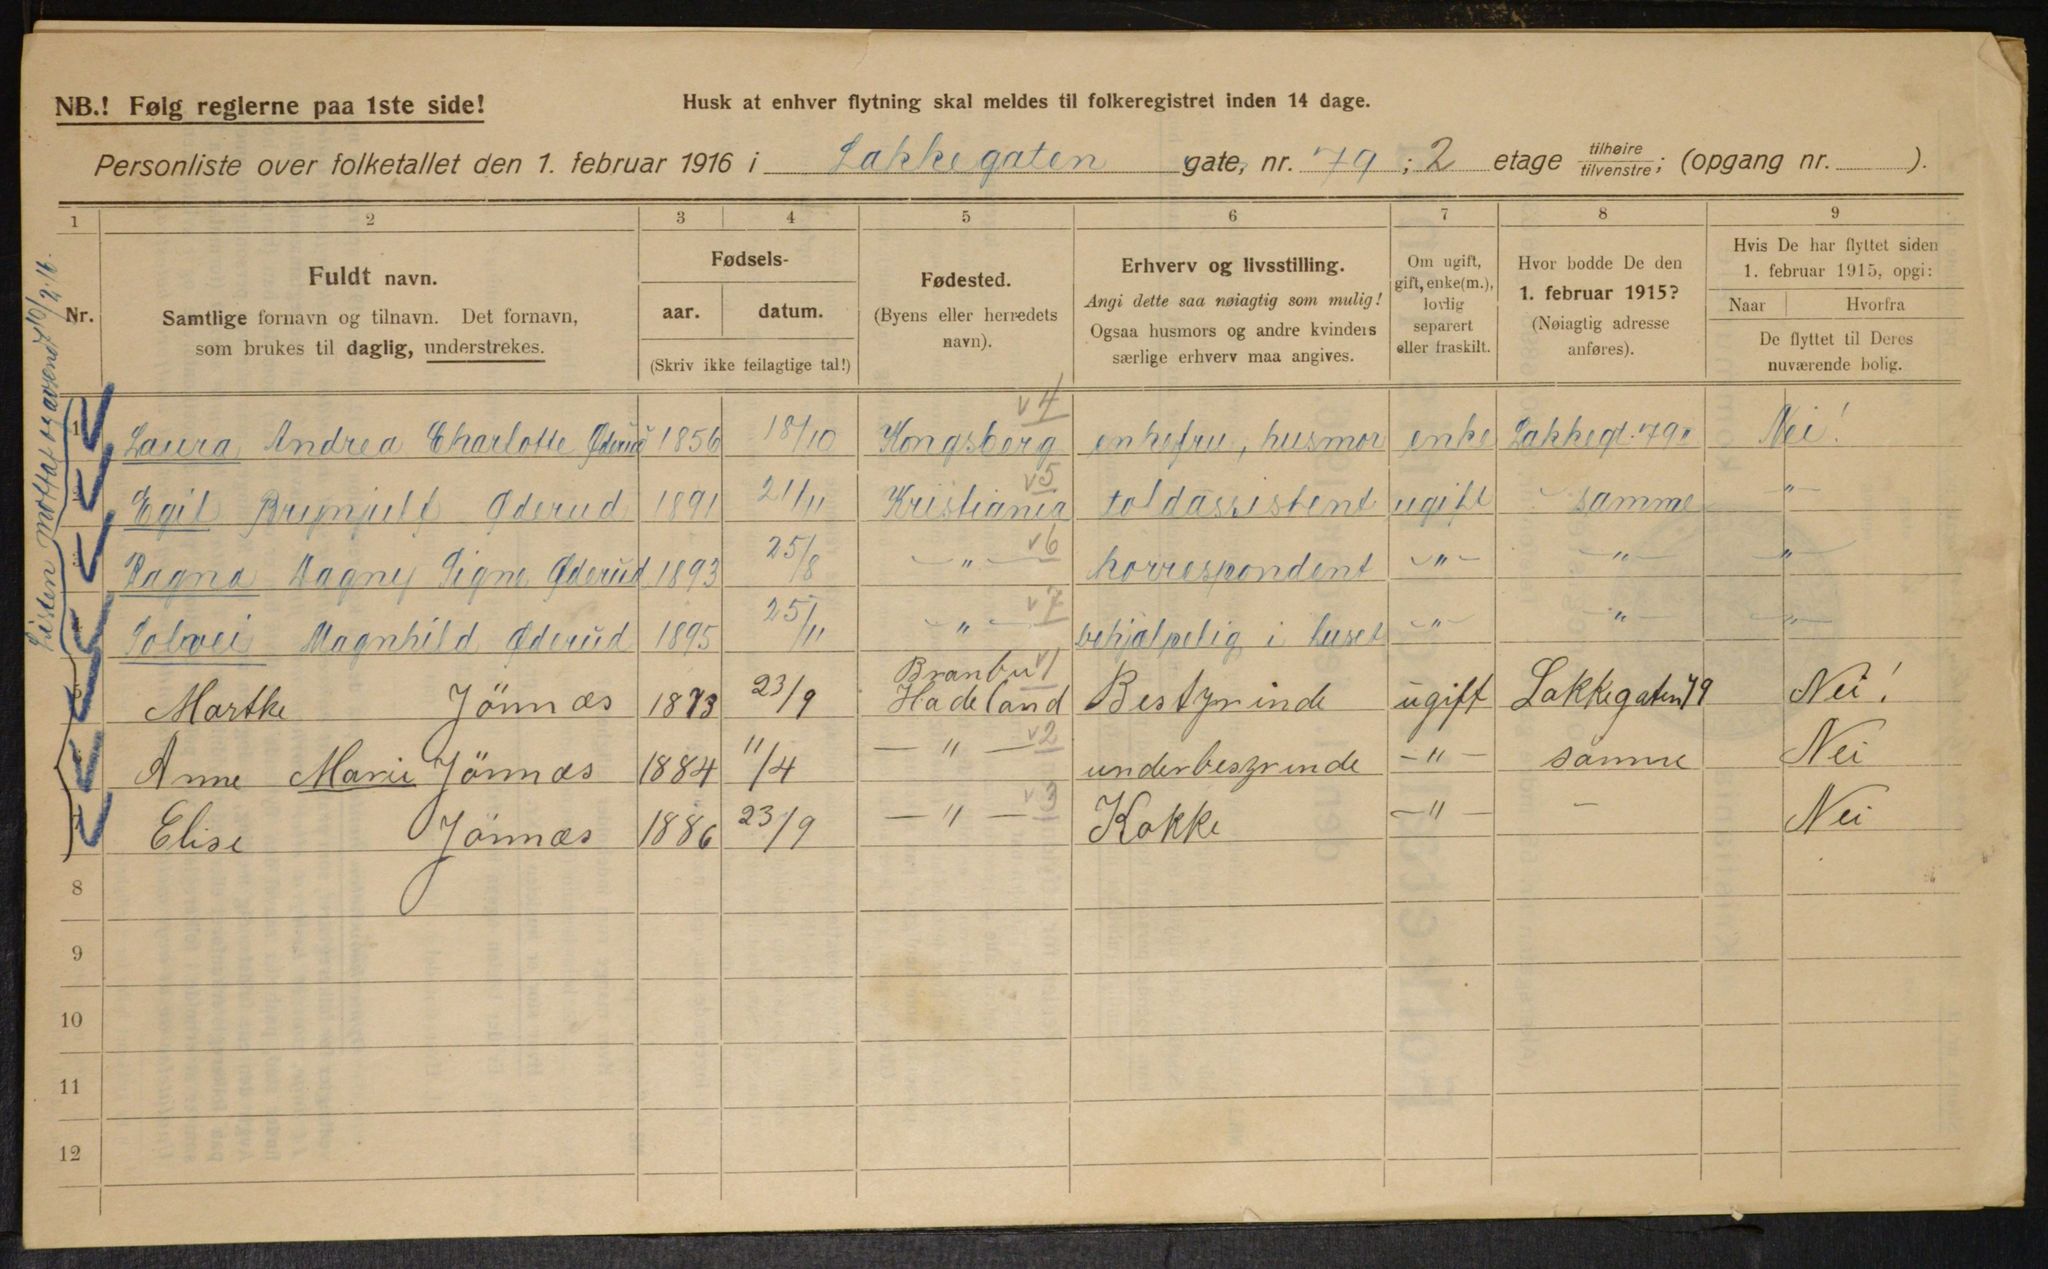 NB.! Følg reglerne paa 1ste side!
Husk at enhver flytning skal meldes til folkeregistret inden 14 dage.
Personliste over folketallet den 1. februar 1916 i Lakkegaten gate, nr. 79 ; 2 etage tilhøire / tilvenstre ; (opgang nr. ).
1 2 3 4 5 6 7 8 9
Nr.
Fuldt navn.
Samtlige fornavn og tilnavn. Det fornavn,
som brukes til daglig, understrekes.
Fødsels-
aar. datum.
(Skriv ikke feilagtige tal!)
Fødested.
(Byens eller herredets
navn).
Erhverv og livsstilling.
Angi dette saa nøiagtig som mulig!
Ogsaa husmors og andre kvinders
særlige erhverv maa angives.
Om ugift,
gift, enke(m.),
lovlig
separert
eller fraskilt.
Hvor bodde De den
1. februar 1915?
(Nøiagtig adresse
anføres).
Hvis De har flyttet siden
1. februar 1915, opgi:
Naar Hvorfra
De flyttet til Deres
nuværende bolig.
Listen mottat og avsendt 10/2 16.
v4
1 Laura Andrea Charlotte Øderud 1856 18/10 Kongsberg enkefru, husmor enke Lakkegt. 79 Nei!
v5
Egil Brynjulf Øderud 1891 21/11 Kristiania toldassistent ugift samme - " -
v6
Ragna Dagny Signe Øderud 1893 25/8 - " - korrespondent - " - - " - - " -
v7
Solvei Magnhild Øderud 1895 25/11 - " - behjælpelig i huset - " - - " - - " -
Branbu v1
Marthe Jönnæs 1873 23/9 Hadeland Bestyrinde ugift Lakkegaten 79 Nei!
v2
Anne Marie Jönnæs 1884 11/4 - " - underbesyrinde - " - samme Nei
v3
Elise Jönnæs 1886 23/9 - " - Kokke - " - - Nei
8
9
10
11
12